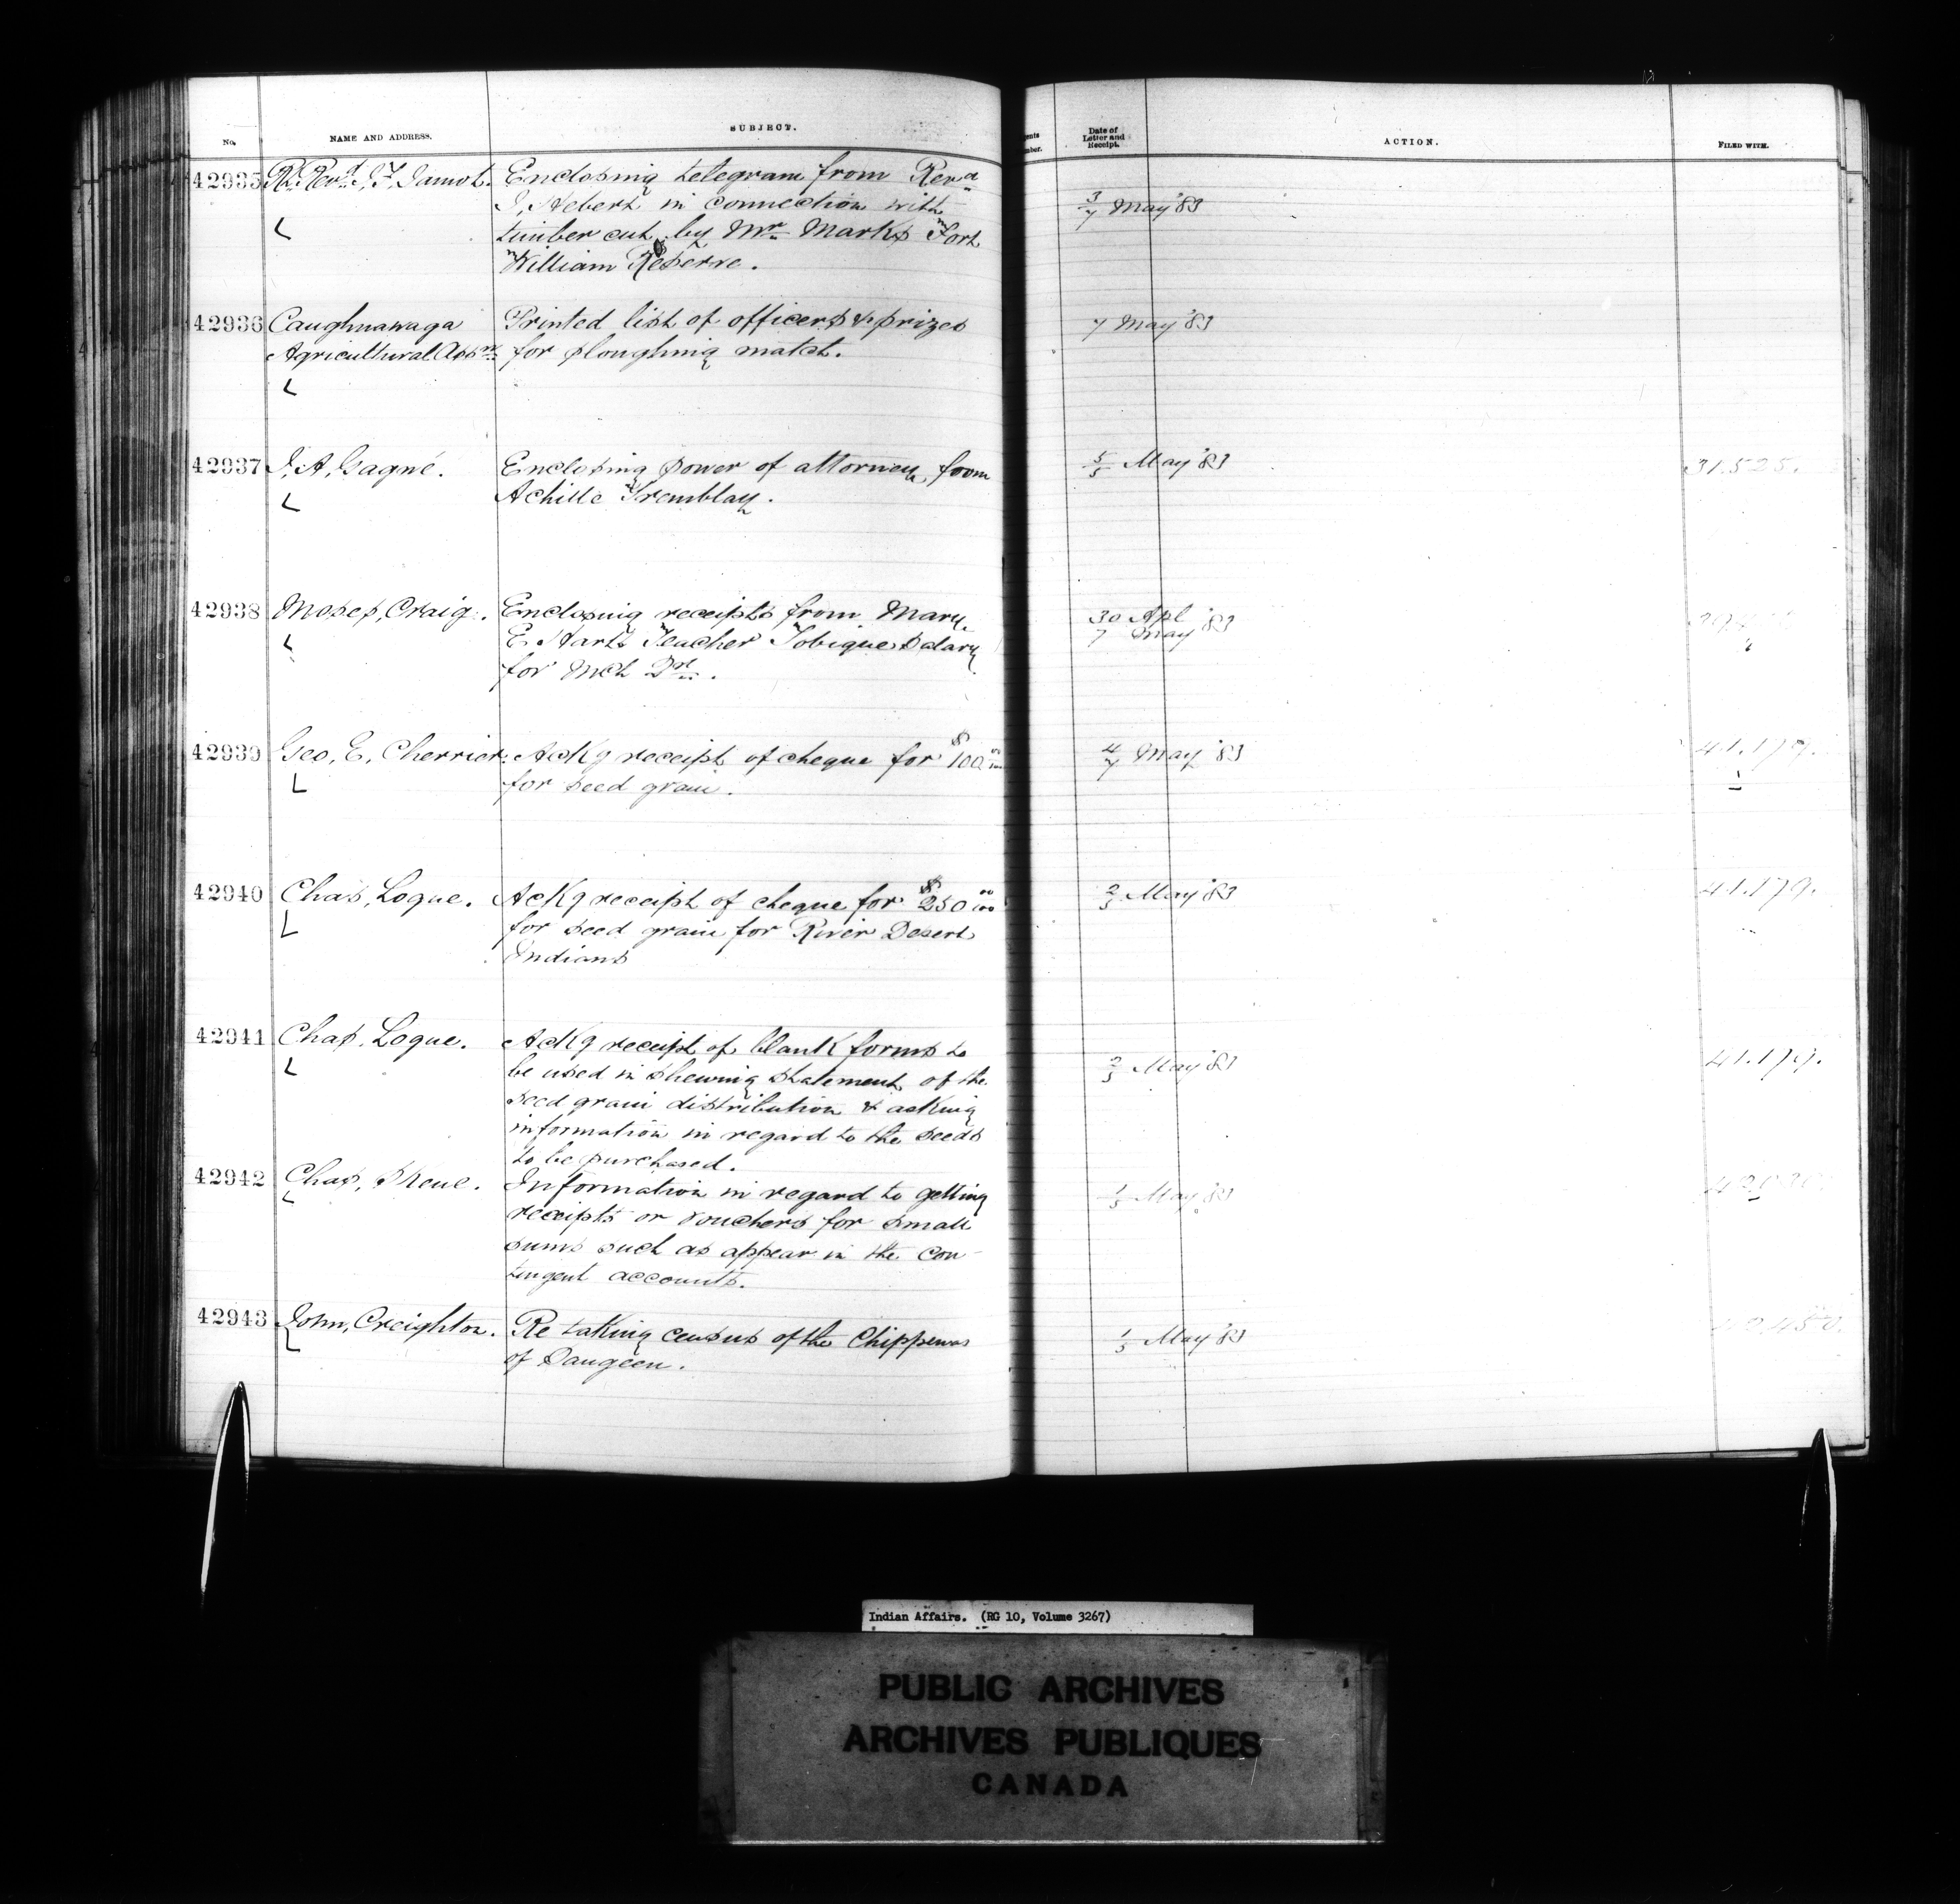 No. NAME AND ADDRESS. SUBJECT. Date of Letter and Receipt. ACTION. FILED WITH.
42935 Rt. Revd. J. F. Jamot. Enclosing telegram from Revd 3/7 May '83
J. Hebert in connection with
timber cut by Mr Marks Fort
William Reserve.
42936 Caughnawaga Printed list of officers & prizes 7 May '83
Agricultural Assn for ploughing match.
42937 J. A. Gagné. Enclosing power of attorney from 5/5 May '83 31.525.
Achille Tremblay.
42938 Moses, Craig. Enclosing receipts from Mary 30 Apl
E. Hartt Teacher Tobique salary 7 May '83
for Mch Qr.
42939 Geo, E, Cherrier. Ackg receipt of cheque for $100 00/100 4/7 May '83 41.179.
for seed grain.
42940 Chas, Logue. Ackg receipt of cheque for $250 00/100 2/5 May '83 41.179.
for seed grain for River Desert
Indians
42941 Chas. Logue. Ackg receipt of blank forms to
be used in shewing statement of the 2/5 May '83 41.179.
seed grain distribution & asking
information in regard to the seeds
to be purchased.
42942 Chas, Skene. Information in regard to getting 1/5 May '83
receipts or vouchers for small
sums such as appear in the con-
tingent accounts.
42943 John, Creighton. Re taking census of the Chippewas 1/5 May '83
of Saugeen.
Indian Affairs. (RG 10, Volume 3267)
PUBLIC ARCHIVES
ARCHIVES PUBLIQUES
CANADA